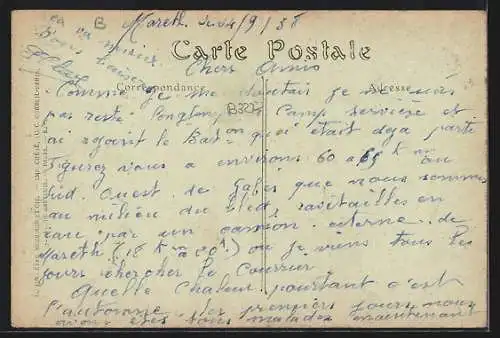 B
Mareth le 24/9/38
ça va
Carte Postale
Chers Amis
Correspondance
Adresse
Comme je me doutais je ne suis
pas resté longtemps Camp servière et
B327
ai rejoint le Bat^on qui était déja parti
Figurez vous a environs 60 a 65 Km au
Sud Ouest de Gabès que nous sommes
au milieu du Bled, ravitailles en
eau par un camion citerne de
Mareth (18 Km) ou je viens tous les
jours chercher le Courrier
Quelle Chaleur pourtant c'est
l'automne. les premiers jours nous
avons étés tous malades maintenant